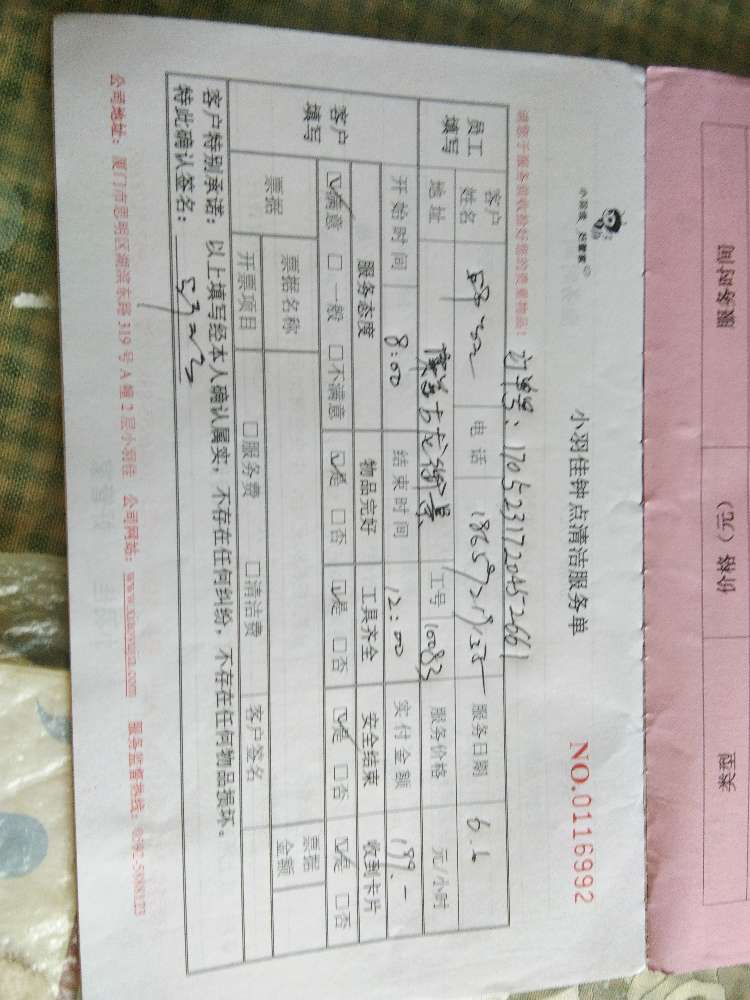 小羽佳 好管家
小羽佳钟点清洁服务单
NO.0116992
订单号：1705231720452661
请您于服务前收拾好您的贵重物品！
员工填写
客户姓名 电话 服务日期 6.2
地址 工号 10083 服务价格 元/小时
开始时间 8:00 结束时间 12:00 实付金额 199.-
客户填写
服务态度 物品完好 工具齐全 安全结束 收到卡片
☑满意 □一般 □不满意 ☑是 □否 ☑是 □否 ☑是 □否 ☑是 □否
票据 票据名称 票据金额
开票项目 □服务费 □清洁费 客户签名
客户特别承诺：以上填写经本人确认属实，不存在任何纠纷，不存在任何物品损坏。
特此确认签名：
公司地址：厦门市思明区湖滨东路319号A幢2层小羽佳 公司网站：www.xiaoyujia.com 服务监督热线：0592-5888123
服务时间
价格（元）
西米